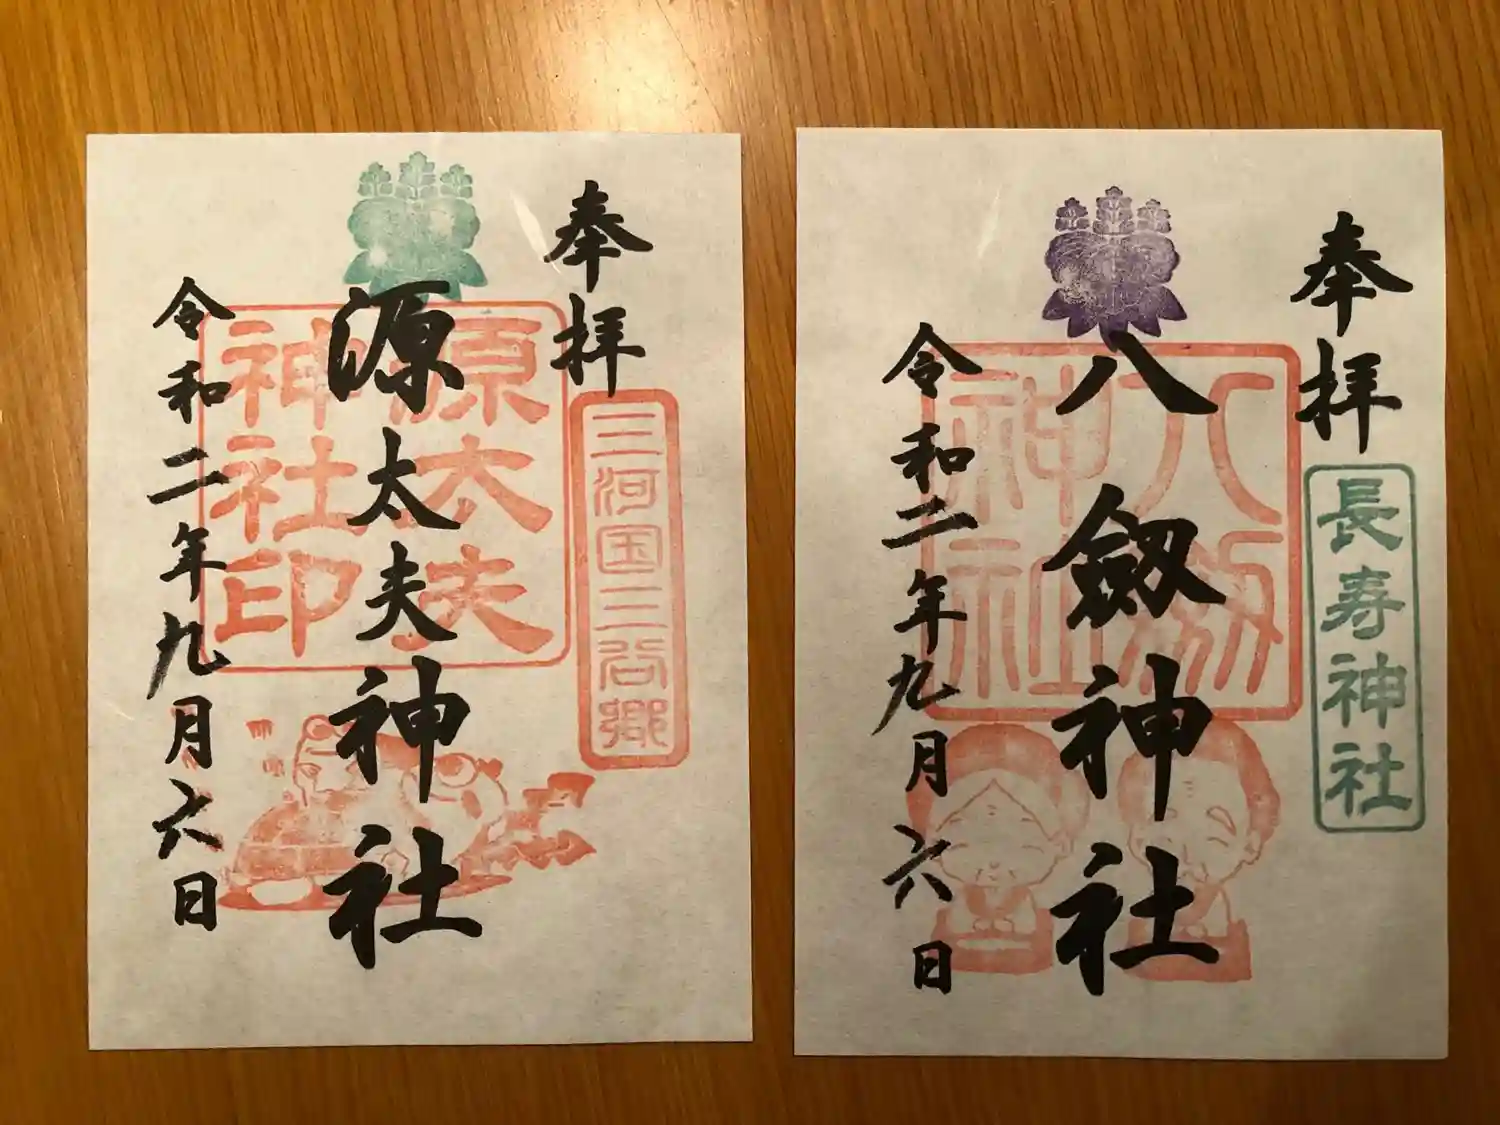 奉拝
三河国三谷郷
源太夫神社
原太夫
神社印
令和二年九月六日
奉拝
長寿神社
八劔神社
八剱
神社
令和二年九月六日